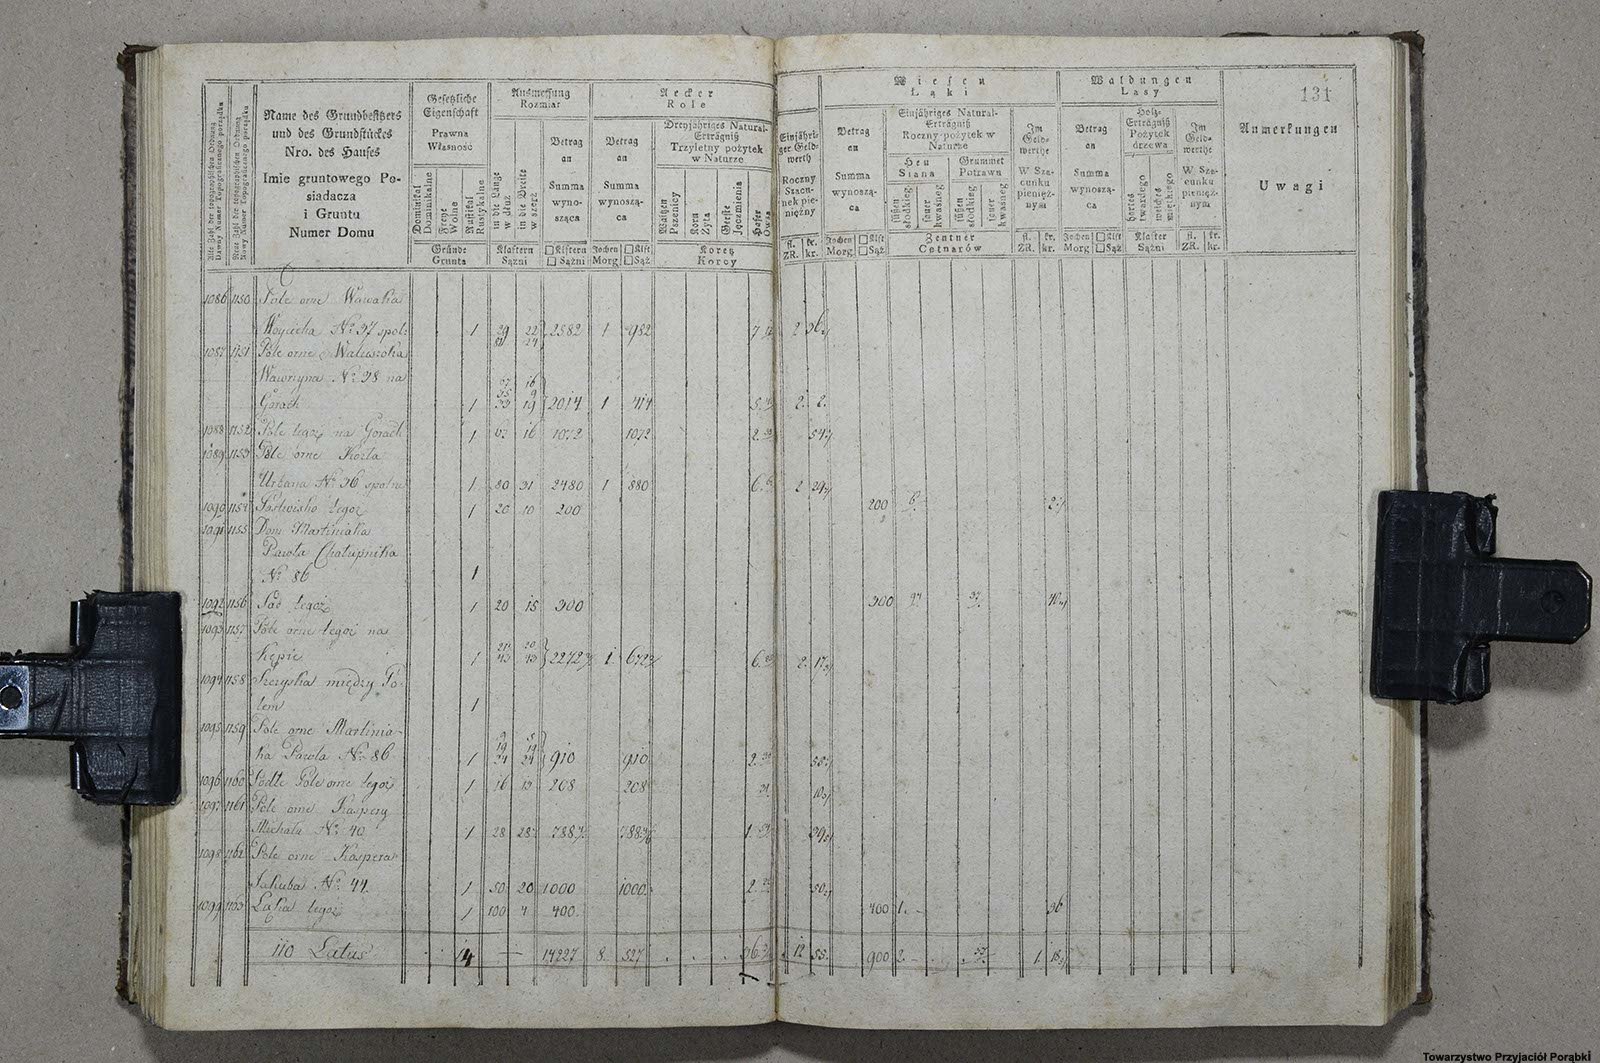 131
Alte Zahl der topographischen Ordnung
Dawny Numer Topograficznego porządku
Neue Zahl der topographischen Ordnung
Nowy Numer Topograficznego porządku
Name des Grundbesitzers
und des Grundstückes
Nro. des Hauses
Imie gruntowego Po-
siadacza
i Gruntu
Numer Domu
Gesetzliche
Eigenschaft
Prawna
Własność
Dominikal
Dominikalne
Freye
Wolne
Rustikal
Rustykalne
Gründe
Grunta
Ausmessung
Rozmiar
in die Länge
w dłuż
in die Breite
w szerz
Klaftern
Sążni
Betrag
an
Summa
wyno-
sząca
□ Klftern
□ Sążni
Aecker
Role
Betrag
an
Summa
wynoszą-
ca
Jochen □ Klft
Morg □ Sąż
Dreyjähriges Natural-
Erträgniß
Trzyletny pożytek
w Naturze
Waitzen
Pszenicy
Korn
Żyta
Gerste
Jęczmienia
Hafer
Owsa
Koretz
Korcy
Einjähri-
ger Geld-
werth
Roczny
Szacu-
nek pie-
niężny
fl. kr.
ZR. kr.
Wiesen
Łąki
Betrag
an
Summa
wynoszą-
ca
Jochen □ Klft
Morg □ Sąż
Einjähriges Natural-
Erträgniß
Roczny pożytek w
Naturze
Heu
Siana
Grummet
Potrawu
süßen
słodkieg
sauer
kwasneg
süßen
słodkieg
sauer
kwasneg
Zentner
Cetnarów
Im
Geld-
werthe
W Sza-
cunku
pienięż-
nym
fl. kr.
ZR. kr.
Waldungen
Lasy
Betrag
an
Summa
wynoszą-
ca
Jochen □ Klft
Morg □ Sąż
Holz-
Erträgniß
Pożytek
drzewa
hartes
twardego
weiches
miętkiego
Klafter
Sążni
Im
Geld-
werthe
W Sza-
cunku
pienięż-
nym
fl. kr.
ZR. kr.
Anmerkungen
Uwagi
1086 1150 Pole orne
Woyciecha No 37 spol: 1 29 22 2582 1 982
1087 1151 Pole orne
Wawrzyna No 38 na
Gorach 1 2014 1 414 2. 2.
1088 1152 Pole tegoż na Gorach 1 67 16 1072 1072 2. 54
1089 1153 Pole orne Kozła
Urbana No 36 spolne 1 80 31 2480 1 880 6. 2 29
1090 1154 Pastwisko tegoż 1 20 10 200 200
1091 1155 Dom Martiniaka
Pawła Chałupnika
No 86 1
1092 1156 Sad tegoż 1 20 15 300 300
1093 1157 Pole orne tegoż na
Kępie 1 2272 1 672 6. 2. 17
1094 1158 między Po-
lem 1
1095 1159 Pole orne Martinia-
ka Pawła No 86 1 910 910 2.
1096 1160 Podle Pole orne tegoż 1 16 13 208 208
1097 1161 Pole orne Kaspery
Michała No 40 1 28 28 788 788 1
1098 1162 Pole orne Kaspera
Jakuba No 44 1 50 20 1000 1000 2 50
1099 1163 Łąka tegoż 1 100 4 400 400 1. 36
110 Latus 14 — 14227 8 527 36 12 55. 900 2. 1. 18
Towarzystwo Przyjaciół Porąbki